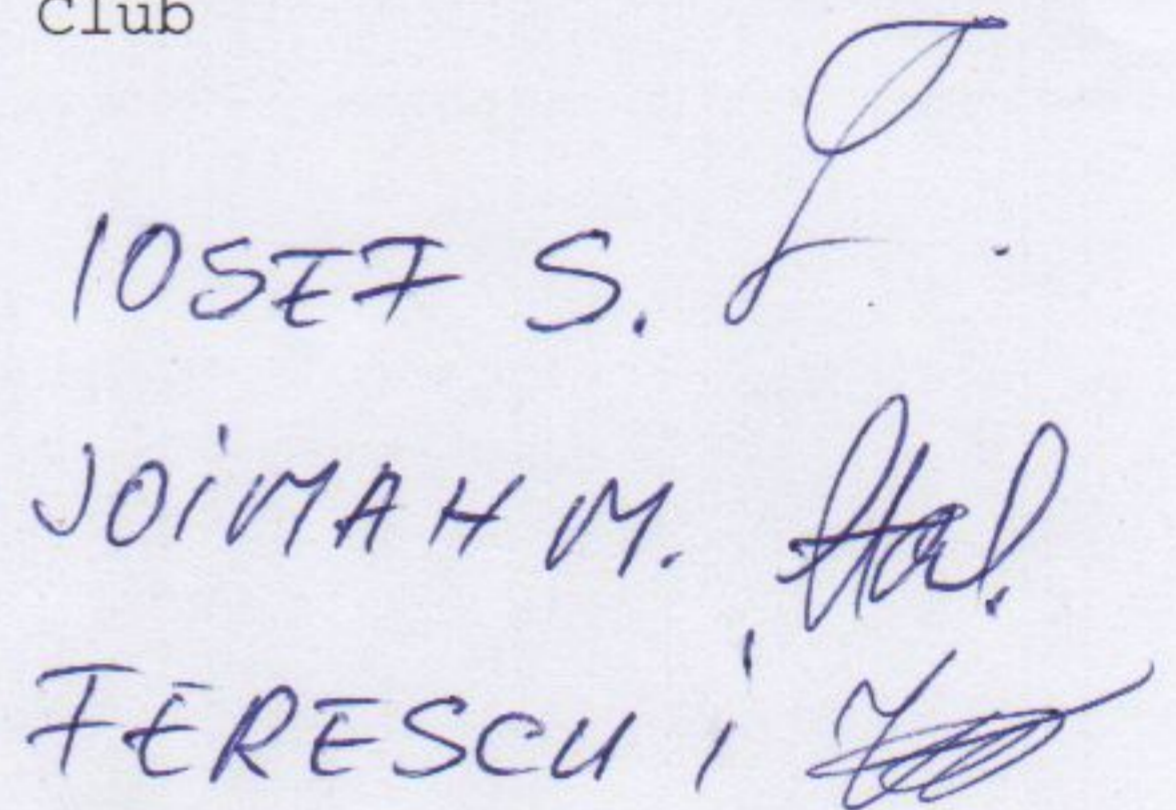 Club
IOSEF S.
JOIMAH M.
FERESCU i